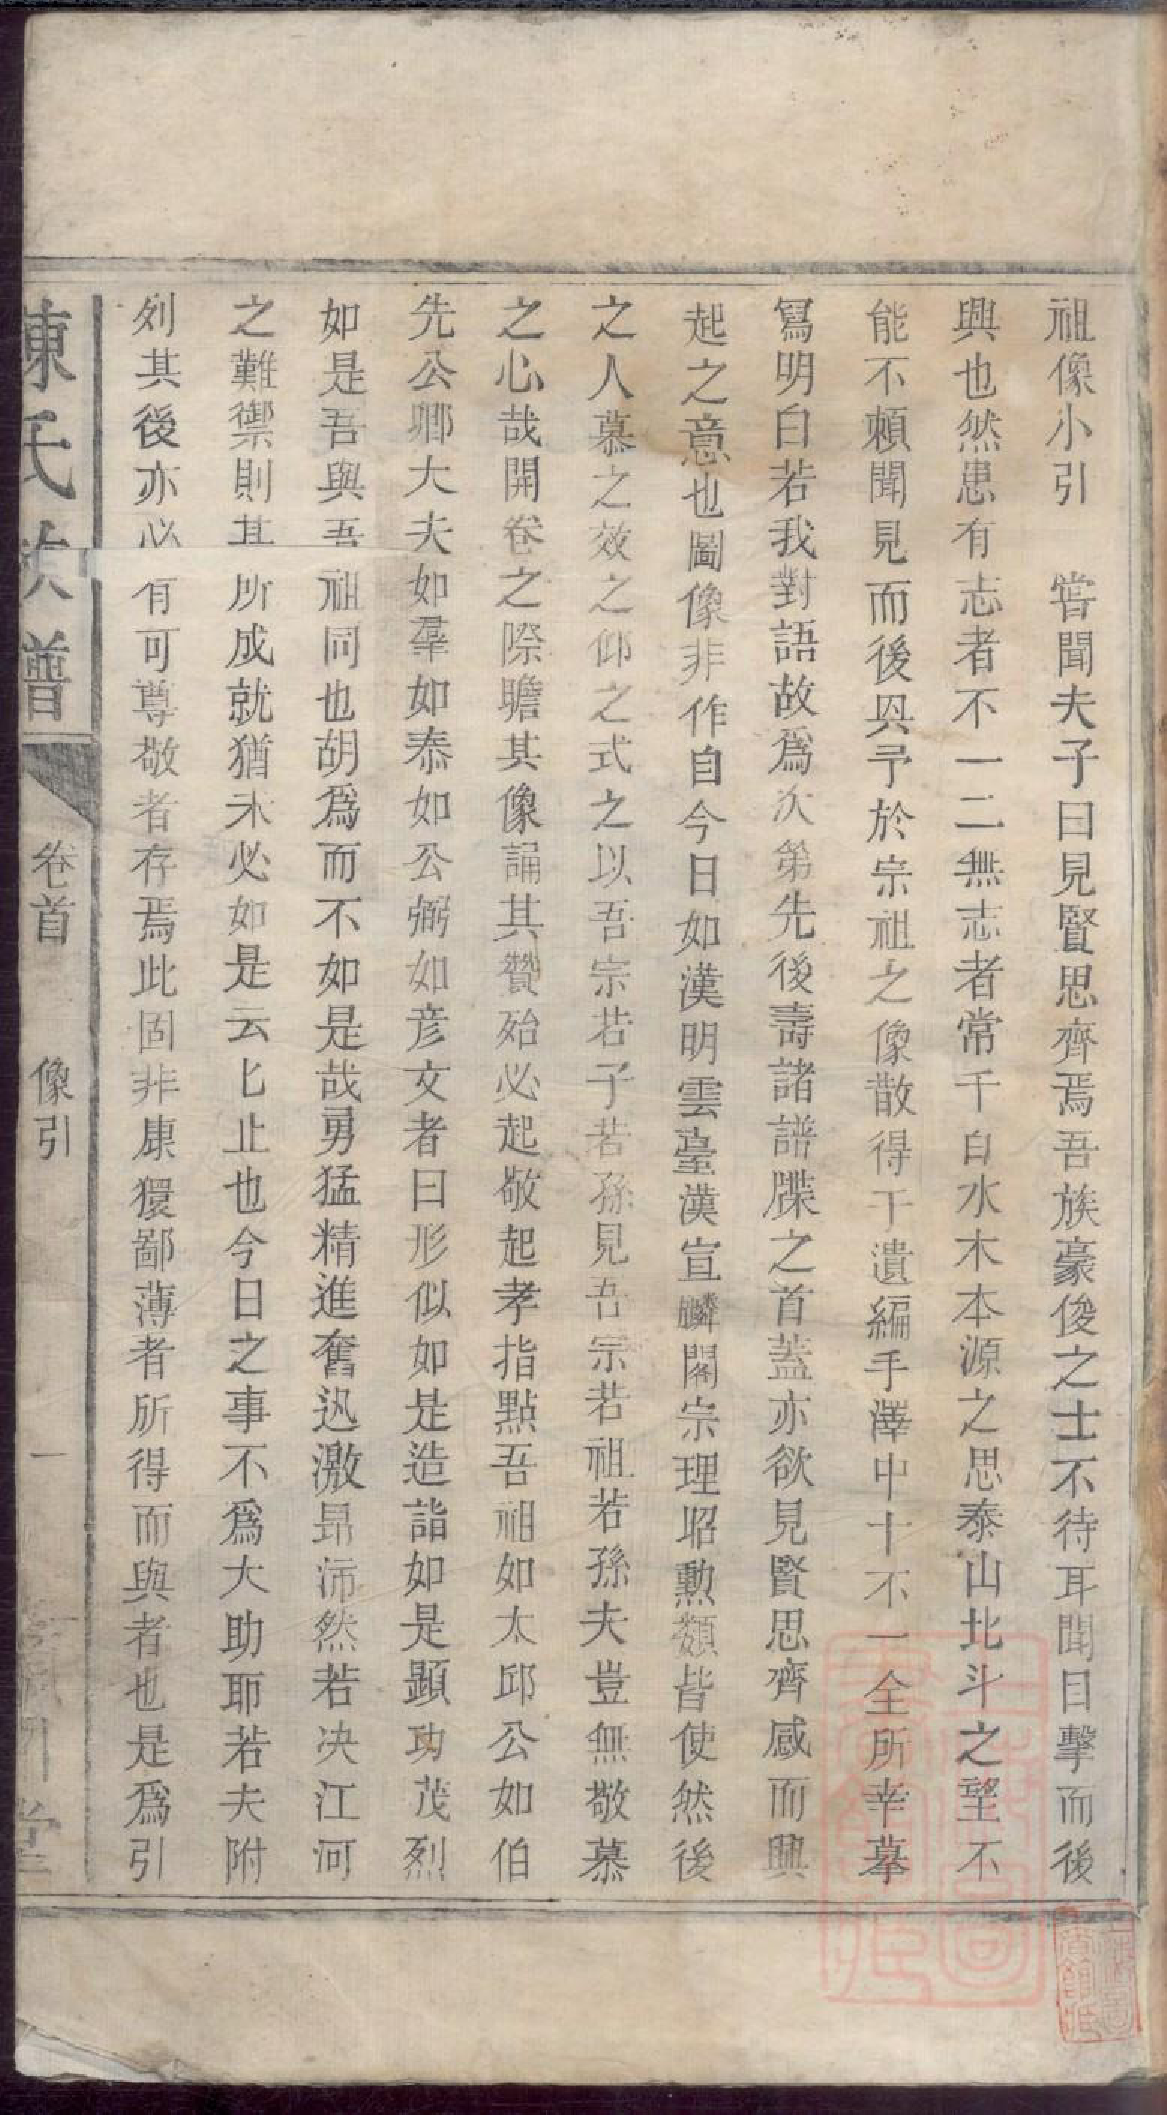 祖像小引　甞聞夫子曰見賢思齊焉吾族豪俊之士不待耳聞目擊而後
興也然患有志者不一二無志者常千百水木本源之思泰山北斗之望不
能不賴聞見而後與予於宗祖之像散得于遺編手澤中十不一全所幸摹
寫明白若我對語故爲次第先後壽諸譜牒之首蓋亦欲見賢思齊感而興
起之意也圖像非作自今日如漢明雲臺漢宣麟閣宗理昭勲類皆使然後
之人慕之效之仰之式之以吾宗若子若孫見吾宗若祖若孫夫豈無敬慕
之心哉開卷之際瞻其像誦其贊殆必起敬起孝指點吾祖如太邱公如伯
先公卿大夫如羣如泰如公弼如彦文者曰形似如是造詣如是顯功茂烈
如是吾與吾祖同也胡爲而不如是哉勇猛精進奮迅激昻沛然若决江河
之難禦則其所成就猶未必如是云匕止也今日之事不爲大助耶若夫附
列其後亦必有可尊敬者存焉此固非康獶鄙薄者所得而與者也是爲引
陳氏族譜
卷首
像引
一
堂